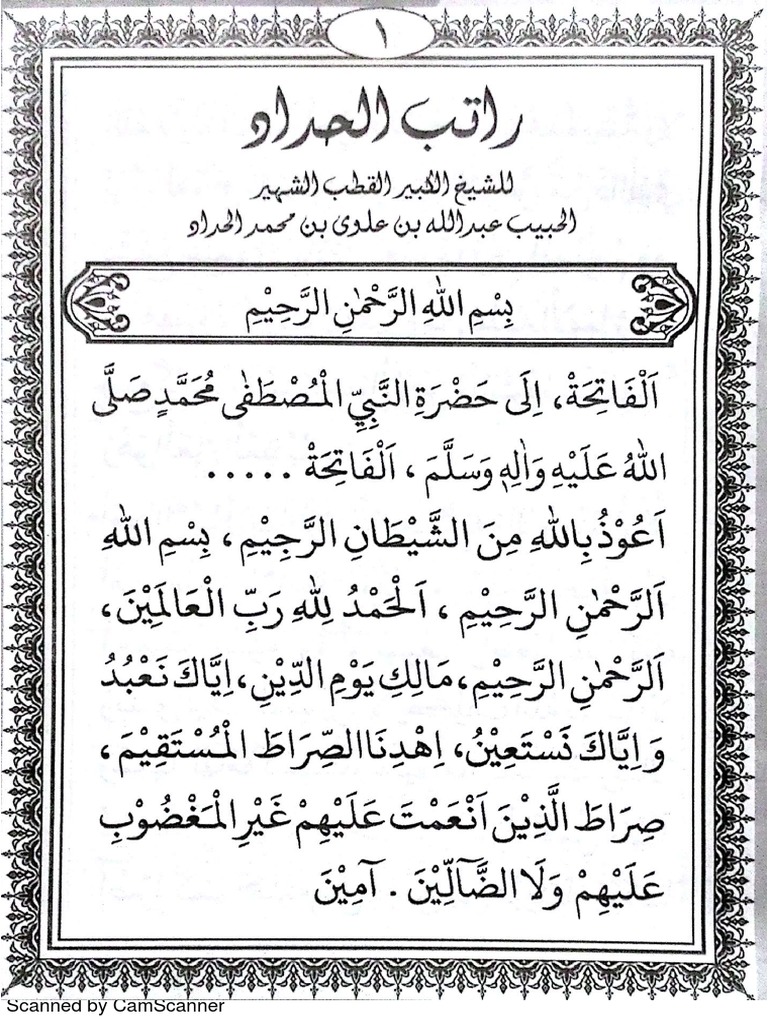 ١
راتب الحداد
للشيخ الكبير القطب الشهير
الحبيب عبدالله بن علوى بن محمد الحداد
بِسْمِ اللهِ الرَّحْمٰنِ الرَّحِيْمِ
اَلْفَاتِحَةْ، اِلَى حَضْرَةِ النَّبِيِّ الْمُصْطَفٰى مُحَمَّدٍ صَلَّى
اللهُ عَلَيْهِ وَاٰلِهٖ وَسَلَّمَ ، اَلْفَاتِحَةْ .....
اَعُوْذُ بِاللهِ مِنَ الشَّيْطَانِ الرَّجِيْمِ ، بِسْمِ اللهِ
اَلرَّحْمٰنِ الرَّحِيْمِ ، اَلْحَمْدُ لِلهِ رَبِّ الْعَالَمِيْنَ،
اَلرَّحْمٰنِ الرَّحِيْمِ، مَالِكِ يَوْمِ الدِّيْنِ، اِيَّاكَ نَعْبُدُ
وَ اِيَّاكَ نَسْتَعِيْنُ، اِهْدِنَا الصِّرَاطَ الْمُسْتَقِيْمَ ،
صِرَاطَ الَّذِيْنَ اَنْعَمْتَ عَلَيْهِمْ غَيْرِ الْمَغْضُوْبِ
عَلَيْهِمْ وَلَا الضَّآلِّيْنَ . آمِيْنَ
Scanned by CamScanner